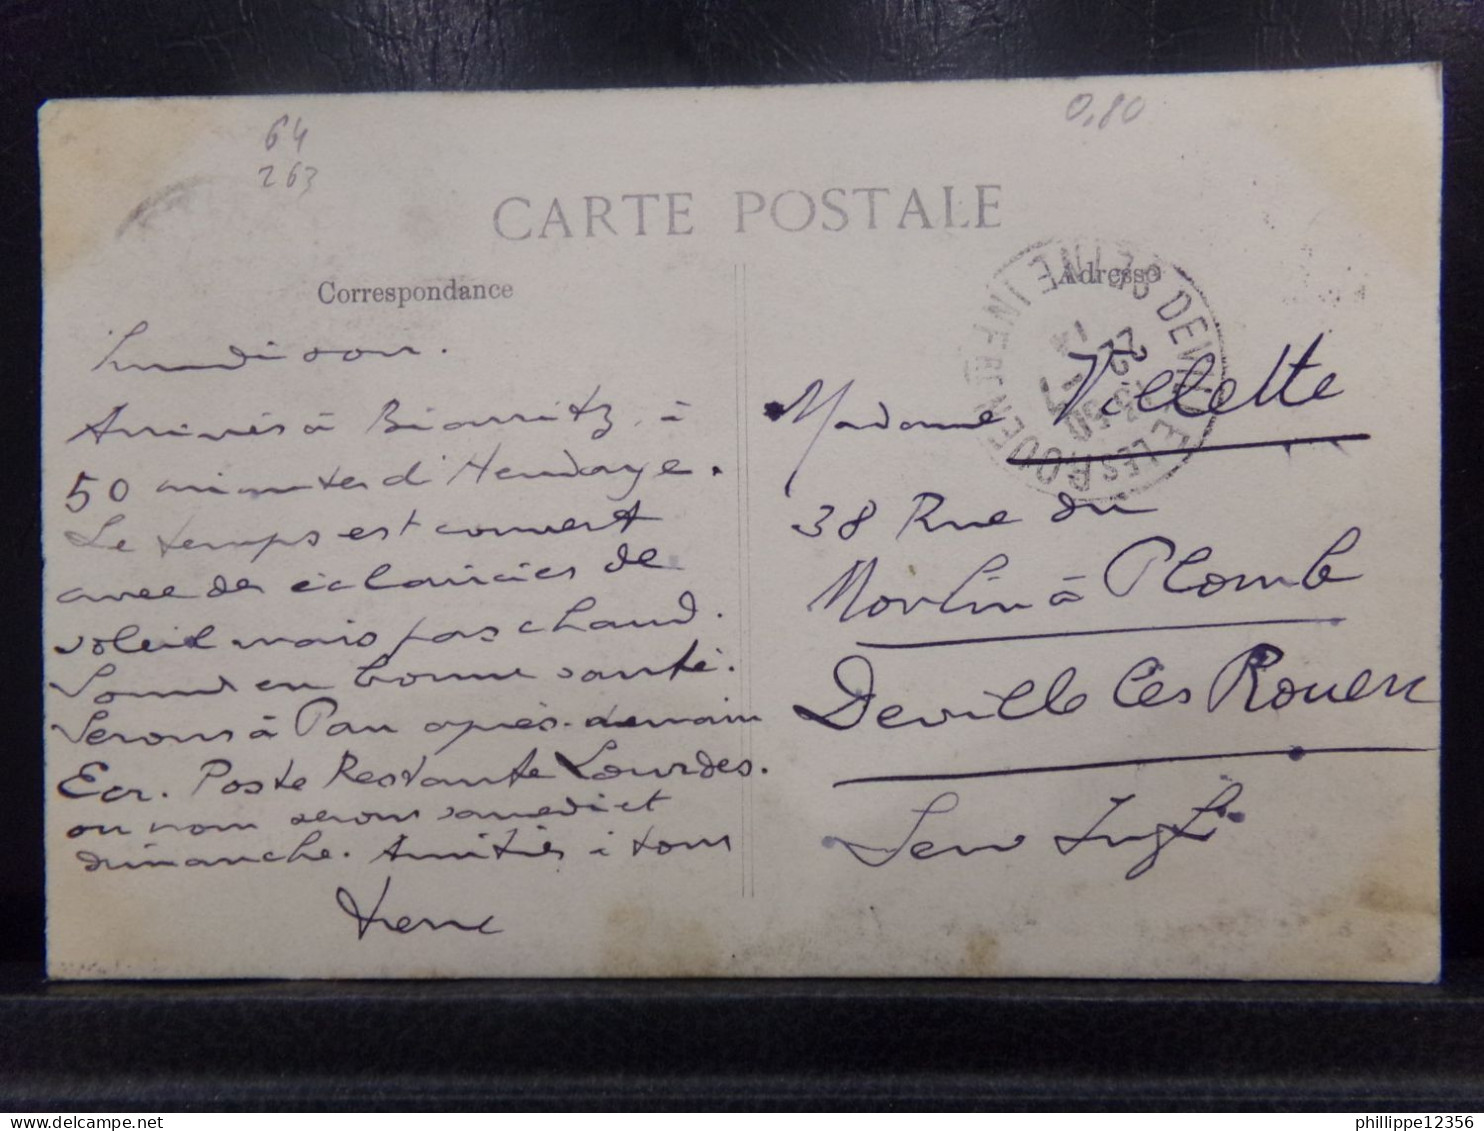 64
263
0,80
CARTE POSTALE
Correspondance
Adresse
Lundi soir.
Arrivés à Biarritz, à
50 minutes d'Hendaye.
Le temps est couvert
avec des éclaircies de
soleil mais pas chaud.
Sommes en bonne santé.
Serons à Pau après-demain
Ecr. Poste Restante Lourdes.
où nous serons samedi et
dimanche. Amitiés à tous
DEVILLE LES ROUEN
SEINE INFRE
13 50
22 - 7
14
Madame Villette
38 Rue du
Moulin à Plomb
Deville lès Rouen
Seine Infre
delcampe.net
phillippe12356